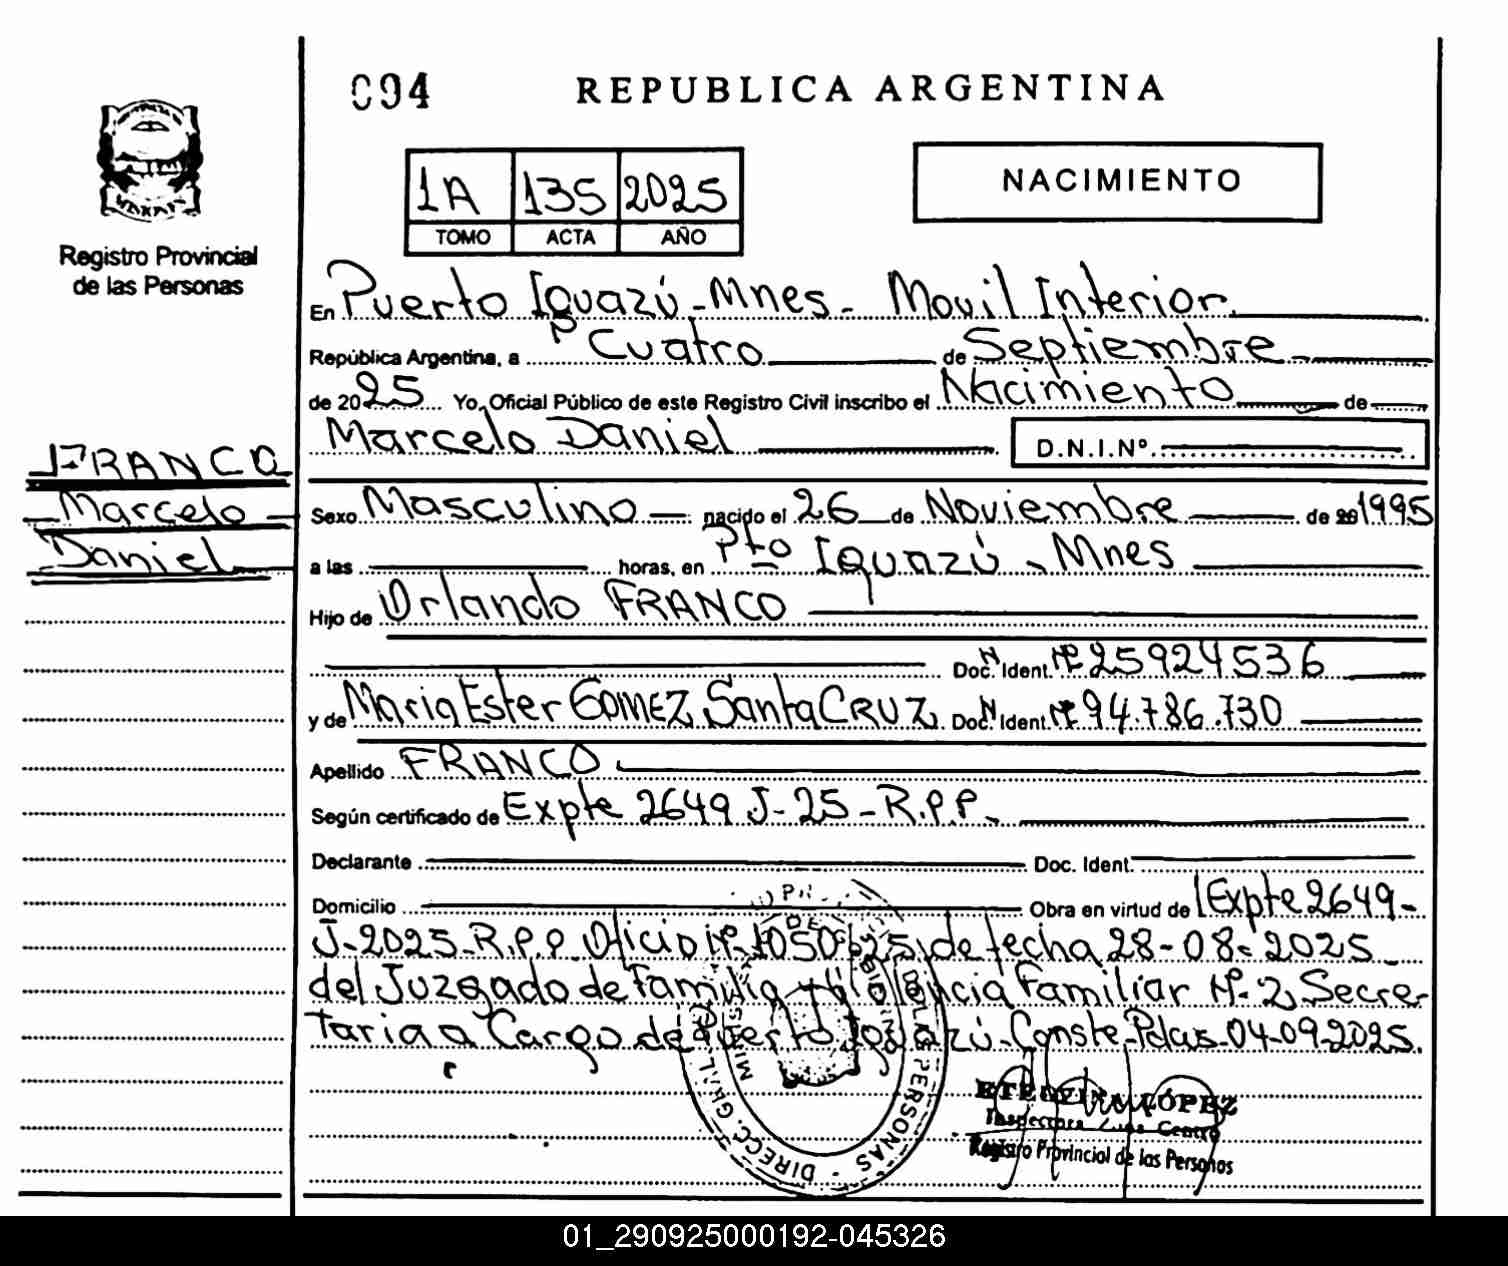 094
REPUBLICA ARGENTINA
1A 135 2025
TOMO ACTA AÑO
NACIMIENTO
Registro Provincial
de las Personas
En Puerto Iguazú - Mnes - Movil Interior
República Argentina, a Cuatro de Septiembre
de 2025 Yo, Oficial Público de este Registro Civil inscribo el Nacimiento de
Marcelo Daniel D.N.I.Nº
FRANCO
Marcelo
Daniel
Sexo Masculino nacido el 26 de Noviembre de 1995
a las horas, en Pto Iguazú - Mnes
Hijo de Orlando FRANCO
Doc. Ident. Nº 25924536
y de Maria Ester GOMEZ SantaCRUZ Doc. Ident. Nº 94.786.730
Apellido FRANCO
Según certificado de Expte 2649 J-25-R.P.P.
Declarante Doc. Ident.
Domicilio Obra en virtud de Expte 2649-
J-2025-R.P.P. Oficio Nº de fecha 28-08-2025
del Juzgado de Familia y Violencia Familiar Nº 2, Secre-
taria a Cargo de Puerto Iguazú-Conste-Pdas-04-09-2025.
DIRECC. GRAL. DE LAS PERSONAS
ETELVINA LÓPEZ
Inspectora Zona Centro
Registro Provincial de las Personas
01_290925000192-045326